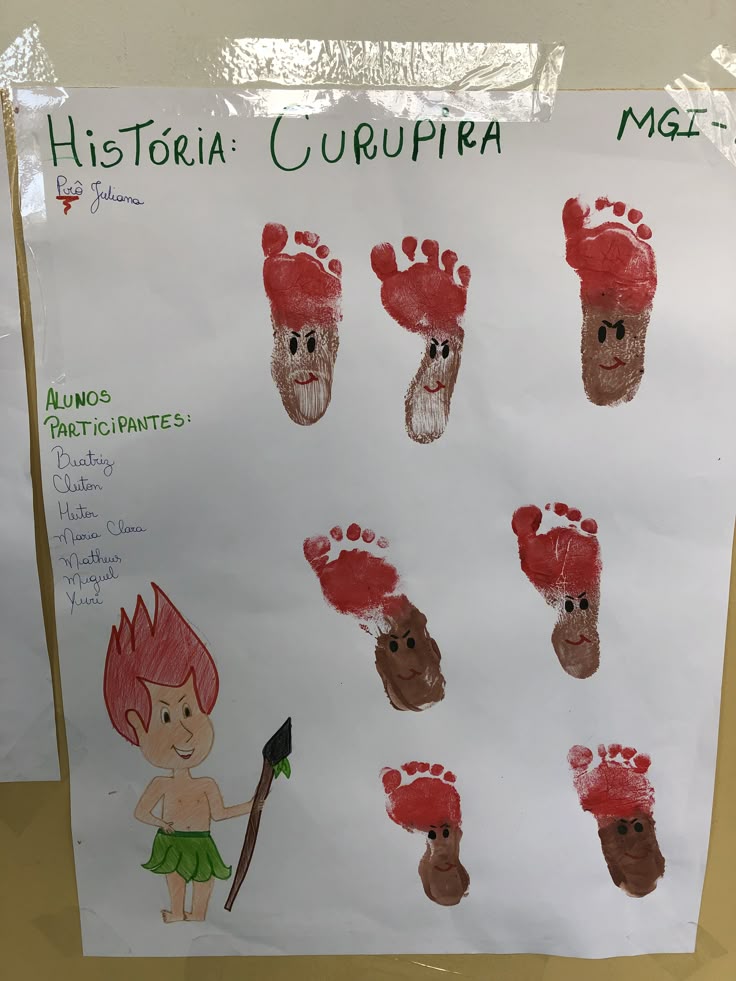 HISTÓRIA: CURUPIRA
MGI-
Prô Juliana
ALUNOS
PARTICIPANTES:
Beatriz
Cleiton
Heitor
Maria Clara
Matheus
Miguel
Yuri